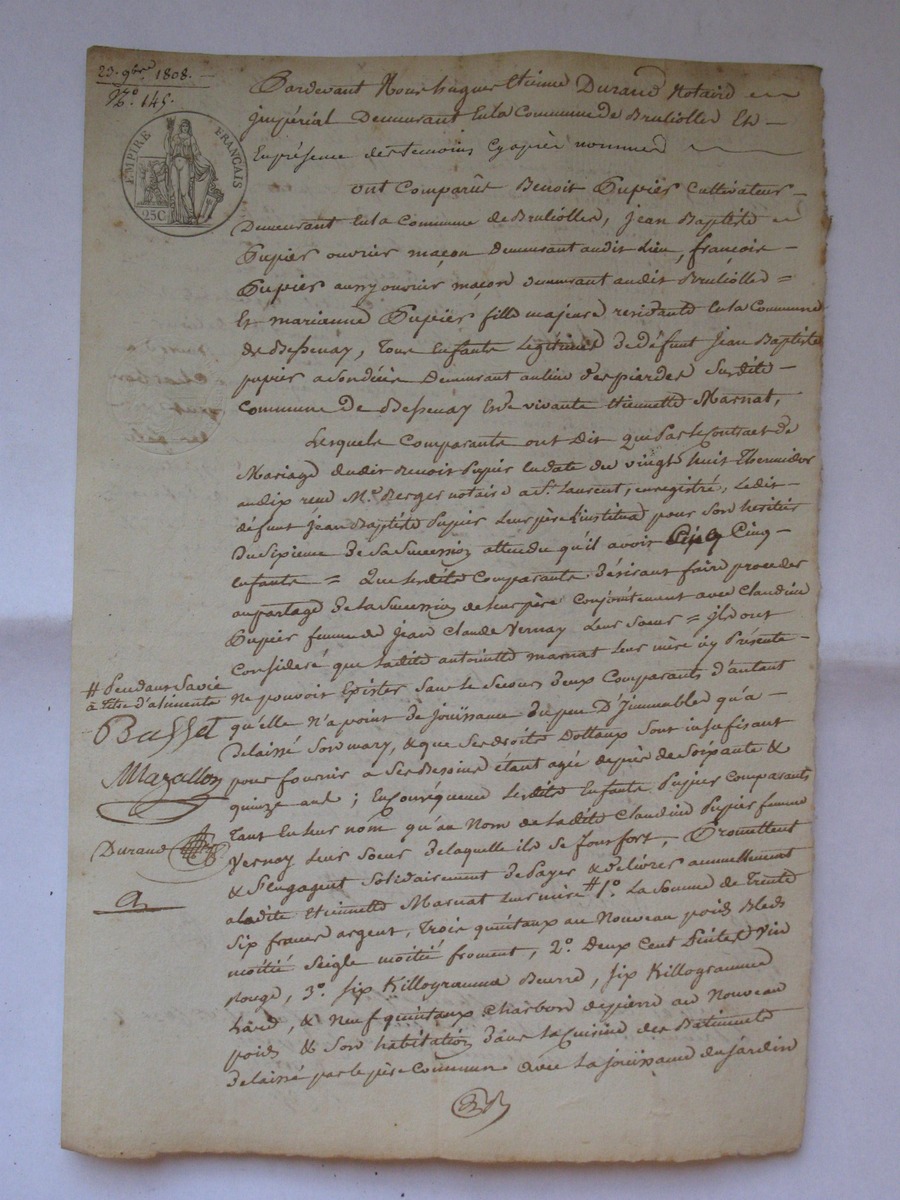 23. 9bre 1808.
No. 145.
EMPIRE FRANÇAIS
25C
Pardevant Nous hugues Etienne Durand Notaire
jmpérial Demeurant En la Commune de Brulioller Et
En présence des temoins Cy après nommés
ont Comparûs Benoit Pupier Cultivateur
Demeurant En la Commune de Brulioller, Jean Baptiste
Pupier ouvrier maçon Demeurant audit Lieu, françois
Pupier aussy ouvrier maçon demeurant audit Brulioller =
Et marianne Pupier fille majeure residante En la Commune
de Bessenay, Tous Enfants Legitimes de défunt Jean Baptiste
pupier a Son décès Demeurant au lieu des pierdes Surdite
Commune De Bessenay Et de vivante Etiennette Marnat,
Lesquels Comparants ont Dit que Par le Contract de
Mariage dudit Benoit Pupier En date du vingt huit Thermidor
an dix reçu Me. Berger notaire a St. Laurent, enregistré, Ledit
défunt Jean Baptiste Pupier Leur père L'institua pour Son heritier
Du Sixieme de Sa Succession attendu qu'il avoit Cinq
Enfants = Que Lesdits Comparants désirant faire proceder
au partage De La Succession de leur père Conjointement avec Claudine
Pupier femme de Jean Claude Vernay Leur Soeur = jls ont
Consideré que Ladite antoinette marnat Leur mère icy Présente
ne pouvoit Exister Sans le Secours deux Comparants d'autant
qu'elle n'a point de jouissance du peu D'immeubles qu'a
Delaissé Son mary, & que Ses droits Dottaux Sont insufisant
pour fournir à Ses Besoins étant agée de près de Soixante &
quinze ans ; En Conséquence Lesdits Enfants Pupier Comparants
Tant En leur nom qu'au Nom de Ladite Claudine Pupier femme
Vernay Leur Soeur de laquelle ils Se font fort, Promettent
& S'engagent Solidairement de Payer & délivrer annuellement
a Ladite Etiennette Marnat Leur mère # 1o. La Somme de Trente
Six francs argent, Trois quintaux au Nouveau poids Bleds
moitié Seigle moitié froment, 2o. Deux Cent Pintes Vin
rouge, 3o. Six Killogramme Beurre, Six Killogramme
Lard, & Neuf quintaux Charbon de pierre au Nouveau
poids & Son habitation dans La Cuisine des Batiments
delaissé par le père Commun avec La jouissance du jardin
# Pendant Sa vie
à Titre d'aliments
Basset
Mazallon
Durand